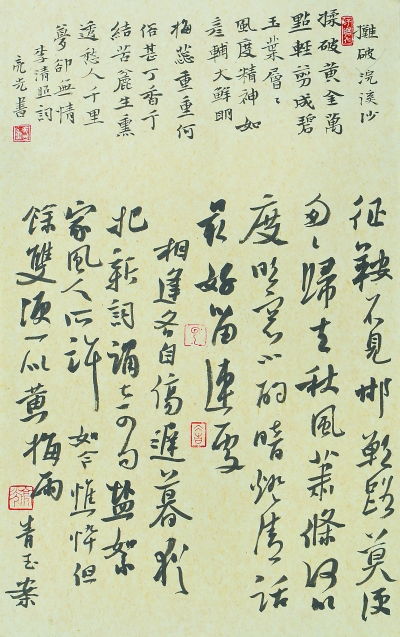 攤破浣溪沙
揉破黃金萬
點輕剪成碧
玉葉層々
風度精神如
彥輔大鮮明
梅蕊重重何
俗甚丁香千
結苦麤生熏
透愁人千里
夢卻無情
李清照詞
征鞍不見邯鄲路莫便
匆々歸去秋風蕭條何以
度明窗小酌暗燈清話
最好留連處
相逢各自傷遲暮猶
把新詞誦奇句鹽絮
家風人所許 如今憔悴但
餘雙淚一似黃梅雨
青玉案